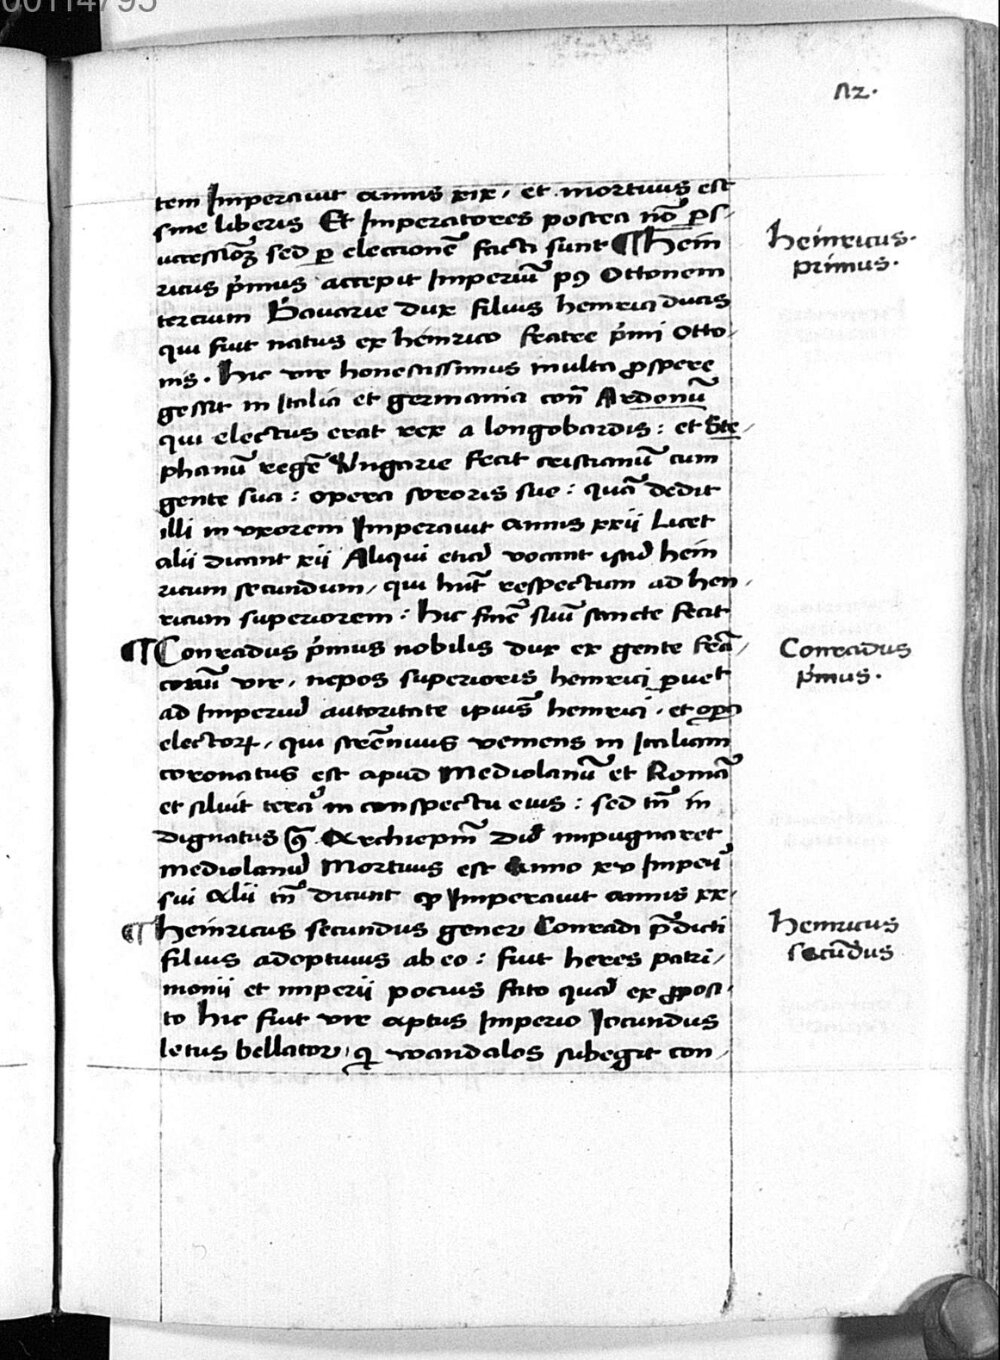 00114795
52.
tem Imperauit annis xix, et mortuus est
sine liberis Et Imperatores postea nō ꝑ s-
uccessionē sed ꝑ eleccionē facti sunt ¶ Hein
ricus p̄mus accepit Imperiū pꝰ Ottonem
tercium Bauarie dux filius henrici ducis
qui fuit natus ex heinrico fratre p̄mi Otto-
nis. Hic vir honestissimus multa ꝓspere
gessit in Italia et germania cont̄ Ardonū
qui electus erat rex a longobardis: et Ste-
phanū regē Vngarie fecit cristianū cum
gente sua: opera sororis sue: quā dedit
illi in vxorem Imperauit annis xxii Licet
alii dicant xii Aliqui etiā vocant istū hein
ricum secundum, qui hn̄t respectum ad hen-
ricum superiorem: hic finē suū sancte fecit
¶ Conradus p̄mus nobilis dux ex gente frā-
corū vir, nepos superioris heinrici ꝑuet
ad Imperiū autoritate ipiꝰ heinrici. et oꝑa
electorꝝ, qui strēnuus veniens in Italiam
coronatus est apud Mediolanū et Romā
et siluit terra in conspectu eius: sed tn̄ in
dignatus Archiep̄m Dū impugnaret
mediolanū Mortuus est Anno xv Imperii
sui Alii tn̄ dicunt ꝙ Imperauit annis xx.
¶ Heinricus secundus gener Conradi p̄dicti
filius adoptiuus ab eo: fuit heres patri-
monii et imperii pocius fato quā ex ꝓposi-
to hic fuit vir aptus Imperio Iocundus
letus bellator, qi wandalos subegit con-
Heinricus.
primus.
Conradus
p̄mus.
Henricus
secūdus